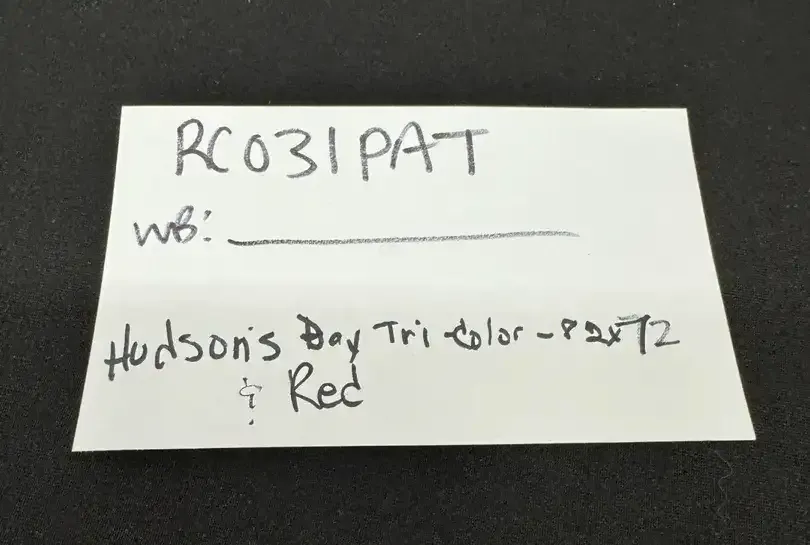 RC031PAT
WB: ___________
Hudson's Bay Tri Color - 82x72
& Red